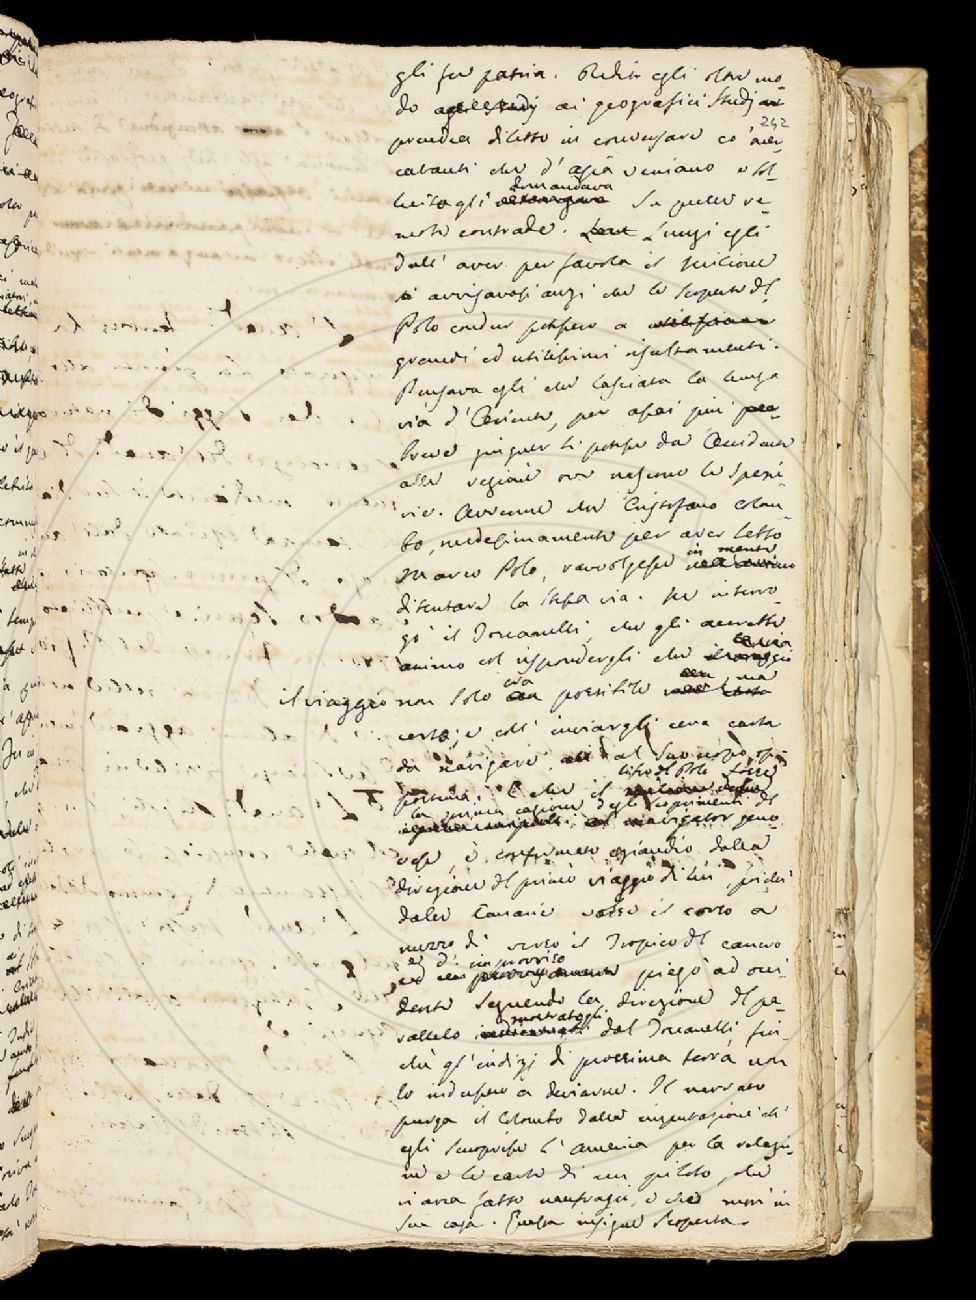 gli fu patria. Dedito egli oltre mo-
do agli studj ai geografici studj
242
prendea diletto in conversare co' mer-
catanti che d'asia veniano e sol-
lecitogli domandava su quelle re-
mote contrade. Lungi egli
dall' aver per favola il milione
avvisavasi anzi che le scoperte del
Polo condur potessero a
grandi ed utilissimi risultamenti.
Pensava egli che lasciata la lunga
via d'Oriente, per assai più
breve giugner si potesse da Occidente
alle regioni ove nascono le spezi-
rie. Avvenne che Cristoforo Colom-
bo, medesimamente per aver letto
Marco Polo, ravvolgesse in mente
di tentare la stessa via. Ne interro-
gò il Toscanelli, che gli accrebbe
animo col rispondergli che
il viaggio non solo era possibile ma
certo; e coll' inviargli una carta
da navigare al suo uopo op-
portuna. E che il libro del Polo fosse
la prima cagione degli scoprimenti del
navigator geno-
vese, è confermato eziandio dalla
direzione del primo viaggio di lui, poichè
dalle Canarie volse il corso a
mezzo dì verso il Tropico del cancro
e d' improvviso piegò ad occi-
dente seguendo la direzione del pa-
rallelo mostratogli dal Toscanelli fin-
chè gl'indizj di prossima terra non
lo indussero a deviarne. Il narrato
purga il Colombo dalla imputazione ch'
egli scoprisse l'America per la relazio-
ne e le carte di un piloto, che
vi avea fatto naufragio, e che morì in
sua casa. Questa insigne scoperta